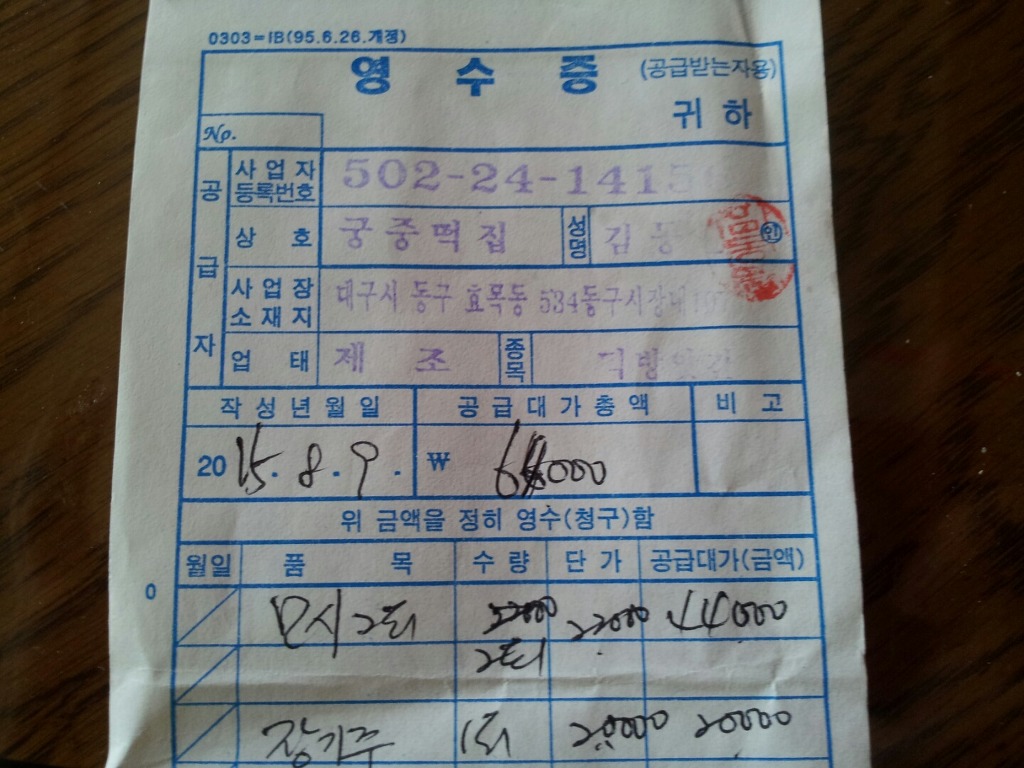 0303-IB(95.6.26.개정)
영 수 증 (공급받는자용)
귀 하
No.
공 급 자
사업자 등록번호 502-24-1415
상 호 궁중떡집 성명 김 인
사업장 소재지 대구시 동구 효목동 534동구시장내
업 태 제 조 종목
작성년월일 공급대가총액 비 고
2015. 8. 9. ₩ 64000
위 금액을 정히 영수(청구)함
월일 품 목 수 량 단 가 공급대가(금액)
모시2되 22000 44000
2되
1되 20000 20000